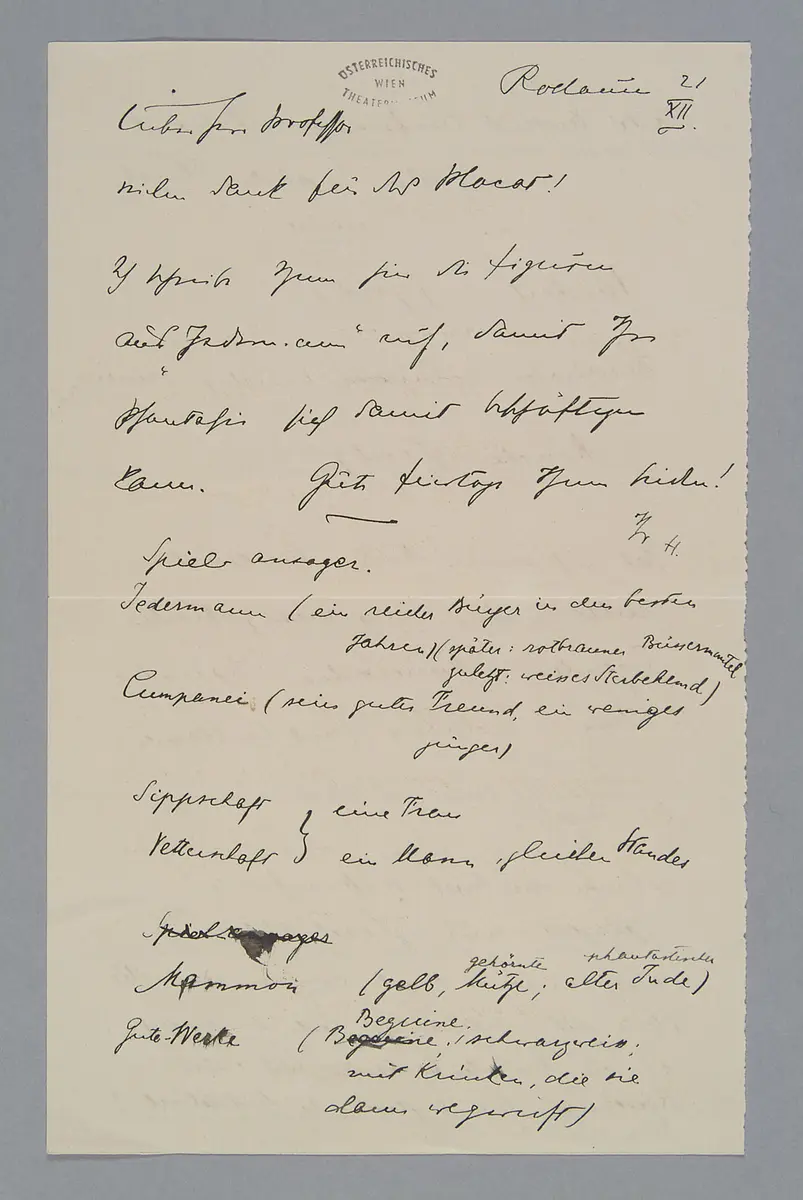 ÖSTERREICHISCHES
WIEN
THEATERMUSEUM
Rodaun 21
XII.
Lieber Herr Professor
vielen Dank für das Placat!
Ich schreibe Ihnen hier die Figuren
aus „Jedermann" auf, damit Ihre
Phantasie sich damit beschäftigen
kann. Gute Feiertage Ihnen beiden!
Ihr H.
Spielansager.
Jedermann (ein reicher Bürger in den besten
Jahren) (später: rotbrauner Büssermantel
zuletzt: weisses Sterbehemd)
Cumpanei (sein guter Freund, ein weniges
jünger)
Sippschaft } eine Frau
Vetterschaft } ein Mann, gleichen Standes
Spielansager
Mammon (gelb, gehörnte Mütze; phantastischer alter Jude)
Beguine.
Gute Werke (Beguine, schwarzweiss;
mit Krücken, die sie
dann wegwirft)